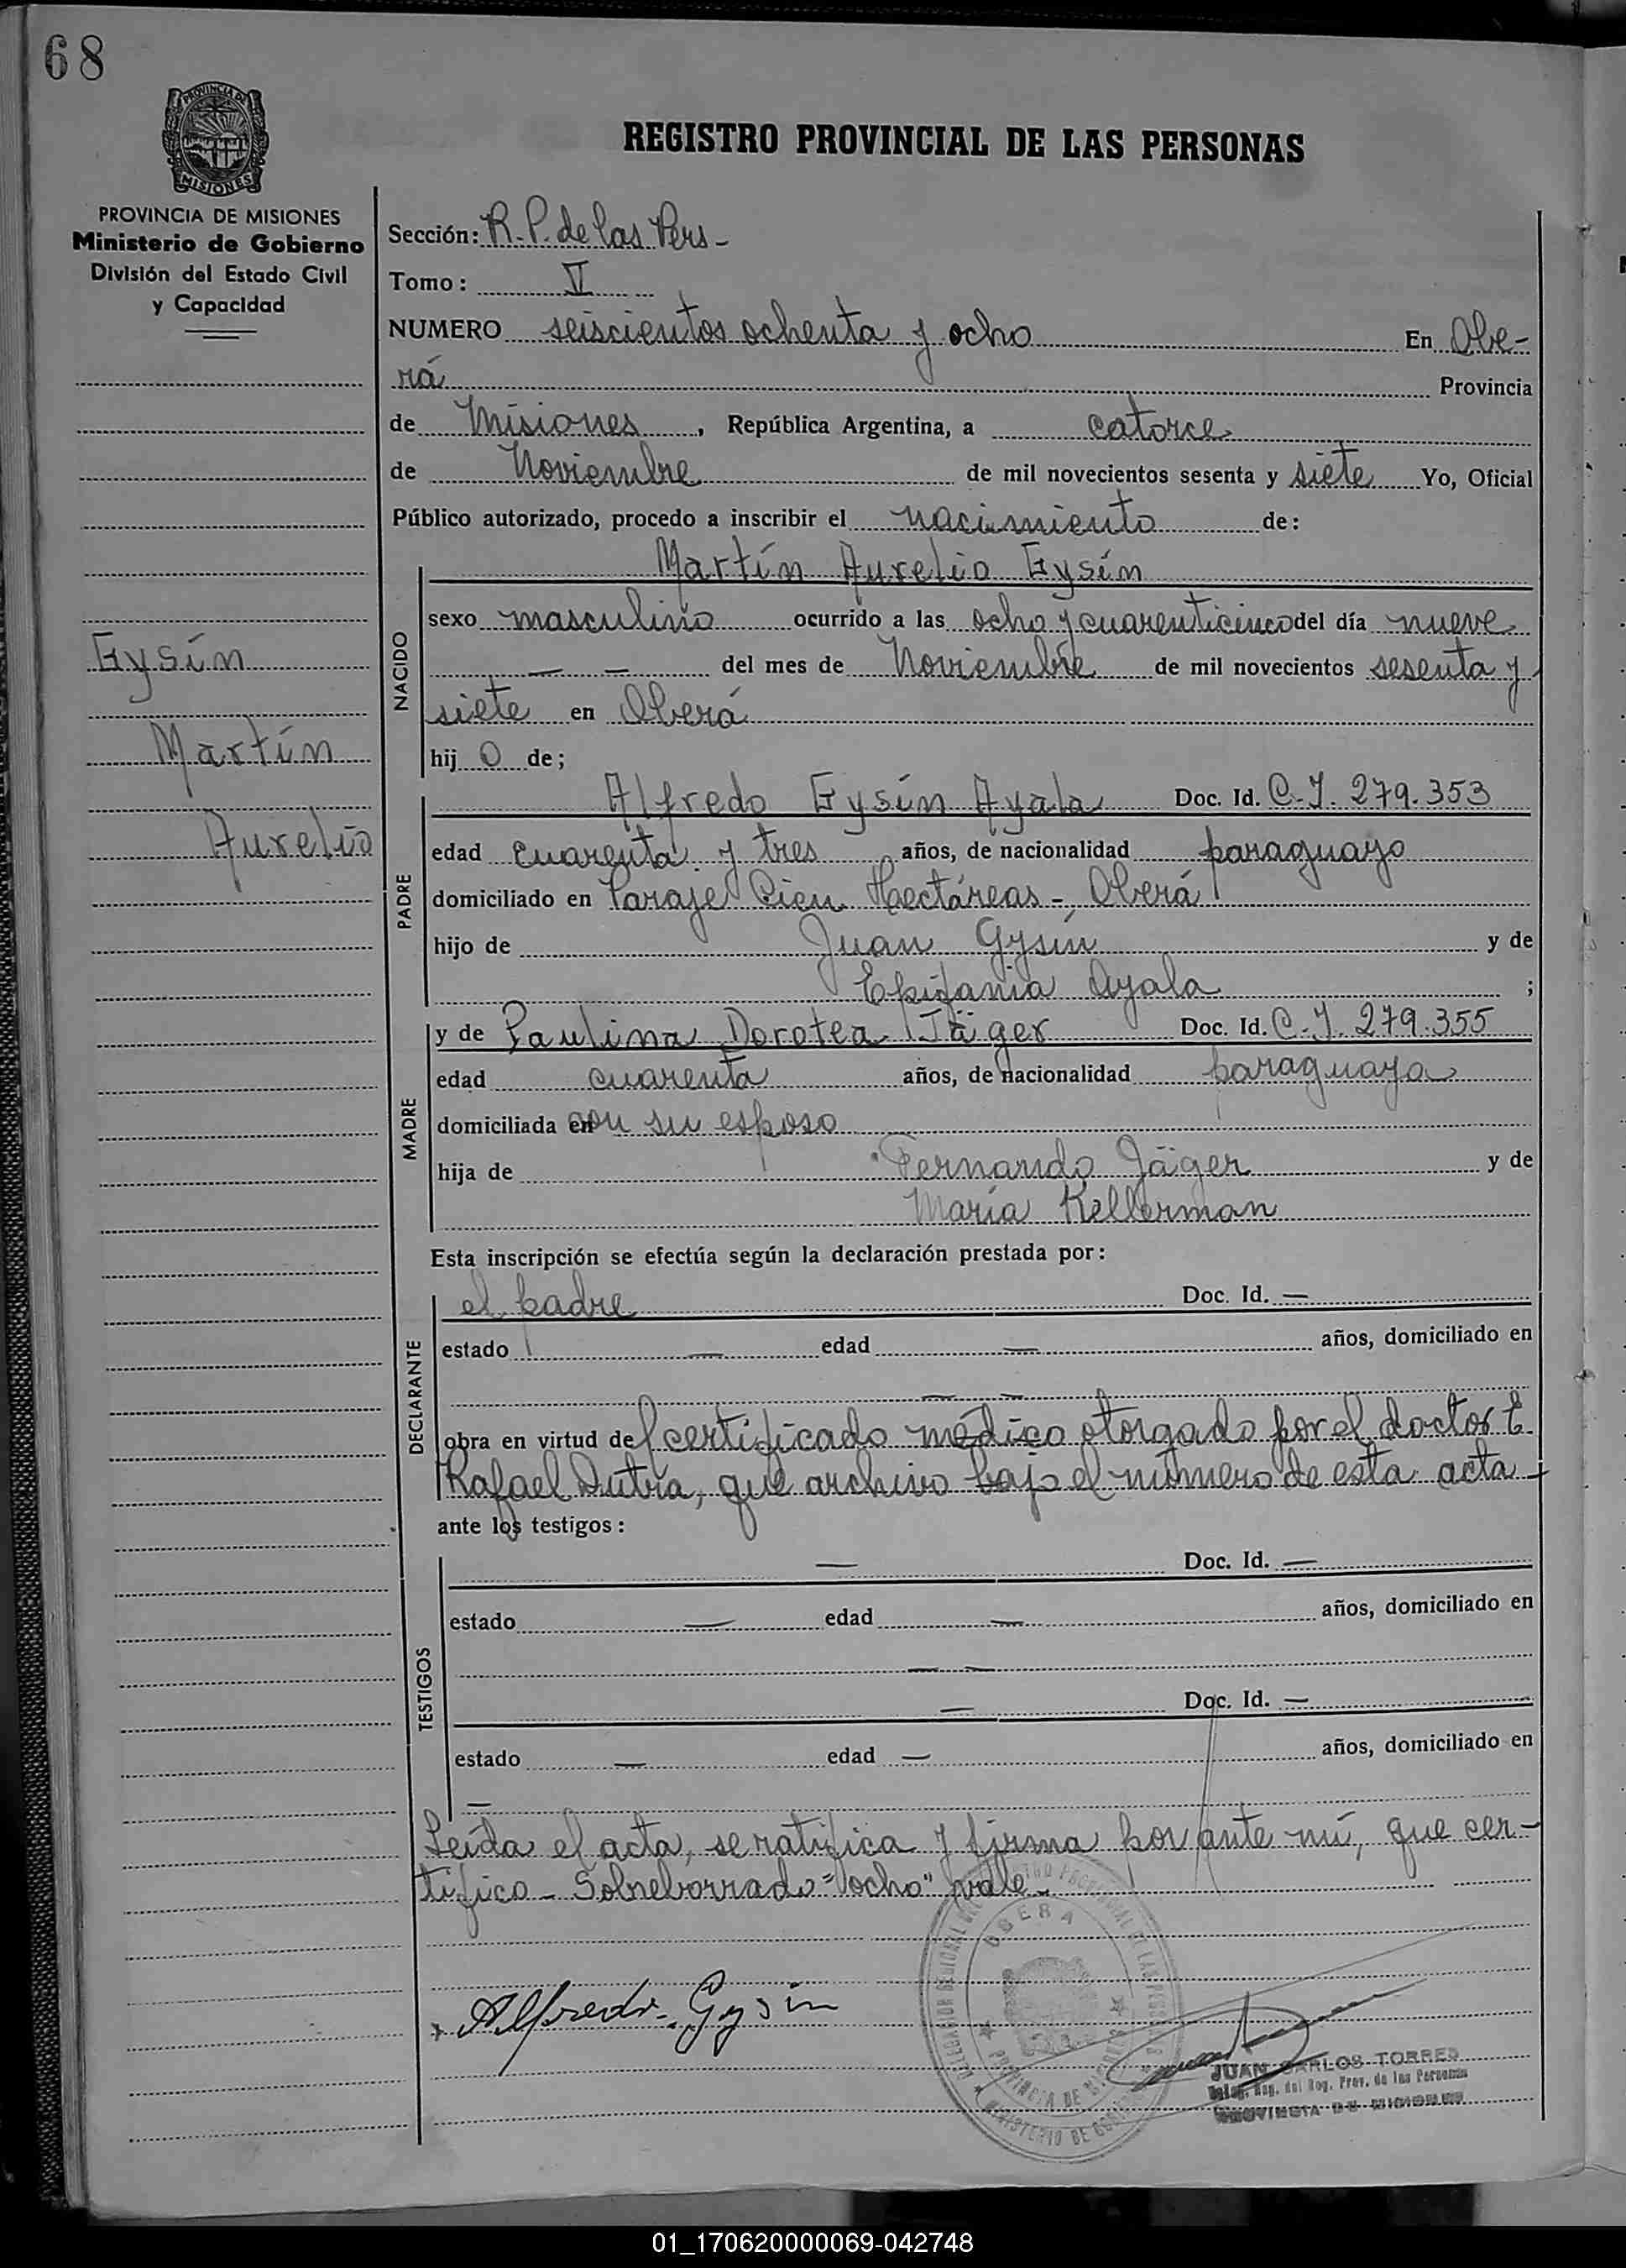 68
PROVINCIA DE
MISIONES
REGISTRO PROVINCIAL DE LAS PERSONAS
PROVINCIA DE MISIONES
Ministerio de Gobierno
División del Estado Civil
y Capacidad
Gysín
Martín
Aurelio
Sección: R.P. de las Pers-
Tomo: V
NUMERO seiscientos ochenta y ocho En Obe-
rá Provincia
de Misiones, República Argentina, a catorce
de Noviembre de mil novecientos sesenta y siete Yo, Oficial
Público autorizado, procedo a inscribir el nacimiento de:
Martín Aurelio Gysín
NACIDO
sexo masculino ocurrido a las ocho y cuarenticinco del día nueve
— — del mes de Noviembre de mil novecientos sesenta y
siete en Oberá
hij o de;
PADRE
Alfredo Gysín Ayala Doc. Id. C.I. 279.353
edad cuarenta y tres años, de nacionalidad paraguayo
domiciliado en Paraje Cien Hectáreas-, Oberá
hijo de Juan Gysín y de
Epifania Ayala ;
MADRE
y de Paulina Dorotea Jäger Doc. Id. C.I. 279.355
edad cuarenta años, de nacionalidad paraguaya
domiciliada en con su esposo
hija de Fernando Jäger y de
María Kellerman
Esta inscripción se efectúa según la declaración prestada por:
DECLARANTE
el padre Doc. Id. —
estado — edad — años, domiciliado en
— —
obra en virtud del certificado médico otorgado por el doctor E.
Rafael Dutra, que archivo bajo el número de esta acta-
ante los testigos:
TESTIGOS
— Doc. Id. —
estado — edad — años, domiciliado en
— —
— Doc. Id. —
estado — edad — años, domiciliado en
—
Leída el acta, se ratifica y firma por ante mí, que cer-
tifico- Sobreborrado="ocho" vale-
Alfredo Gysin
OBERA
PROVINCIA DE MISIONES
MINISTERIO DE GOBIERNO
JUAN CARLOS TORRES
Deleg. Reg. del Reg. Prov. de las Personas
PROVINCIA DE MISIONES
01_170620000069-042748